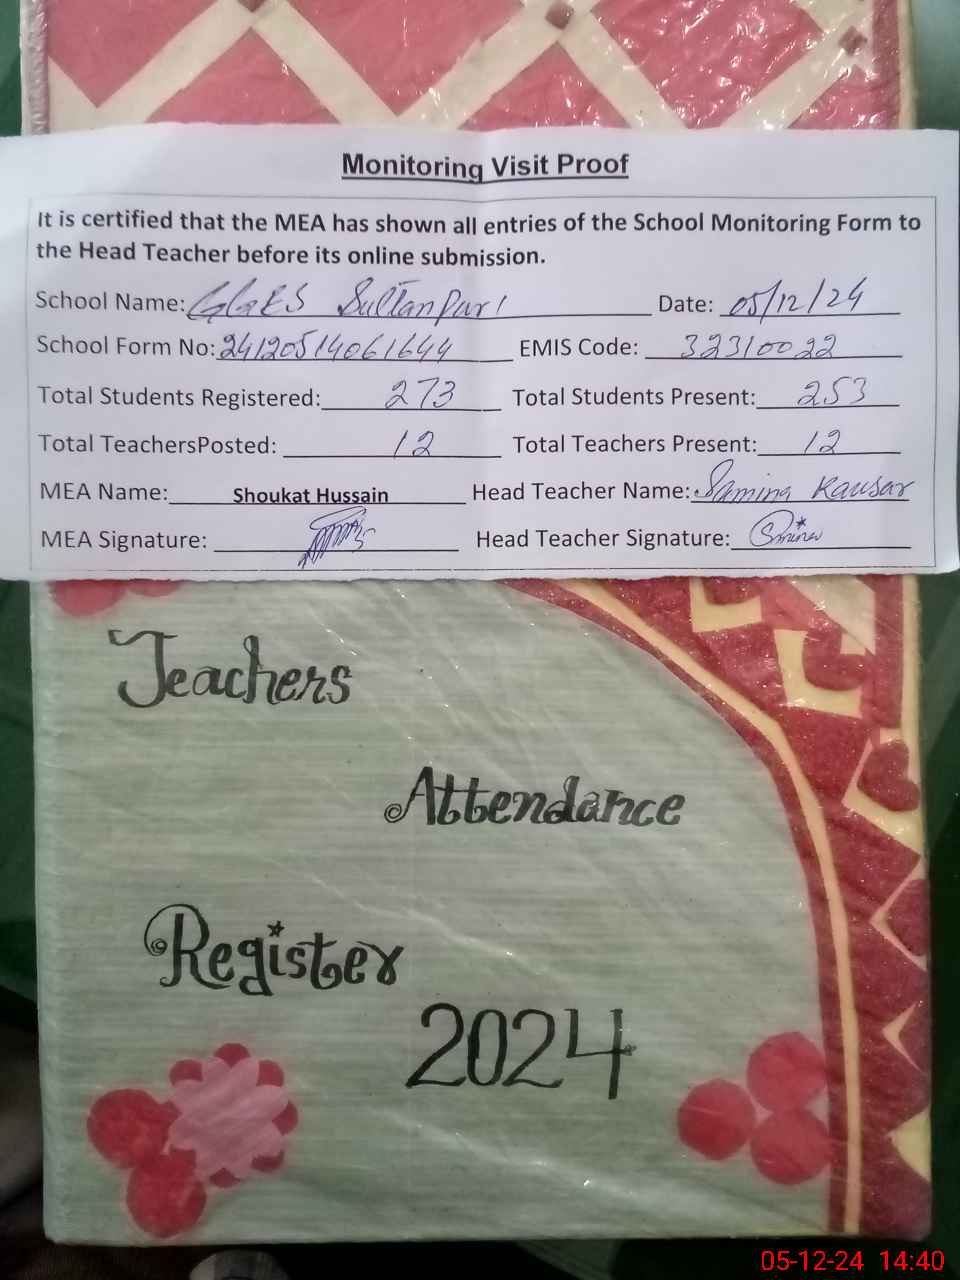 Monitoring Visit Proof
It is certified that the MEA has shown all entries of the School Monitoring Form to
the Head Teacher before its online submission.
School Name: GGES Sultan Puri Date: 05/12/24
School Form No: 24120514061644 EMIS Code: 32310022
Total Students Registered: 273 Total Students Present: 253
Total TeachersPosted: 12 Total Teachers Present: 12
MEA Name: Shoukat Hussain Head Teacher Name: Samina Kausar
MEA Signature: Head Teacher Signature:
Teachers
Attendance
Register
2024
05-12-24 14:40